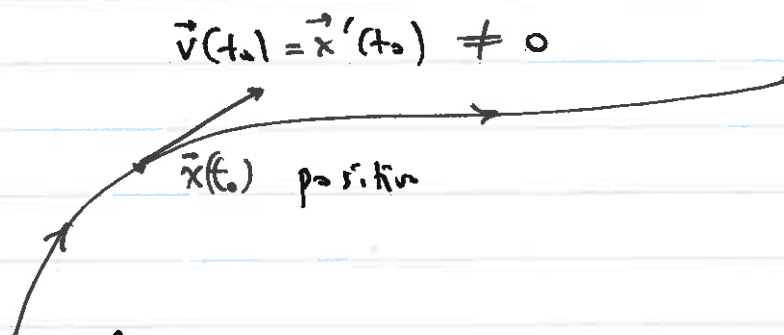 v⃗(t₀) = x⃗'(t₀) ≠ 0
x⃗(t₀) position